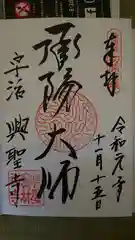 奉拝
令和元年
十一月十五日
承陽大師
宇治 興聖寺